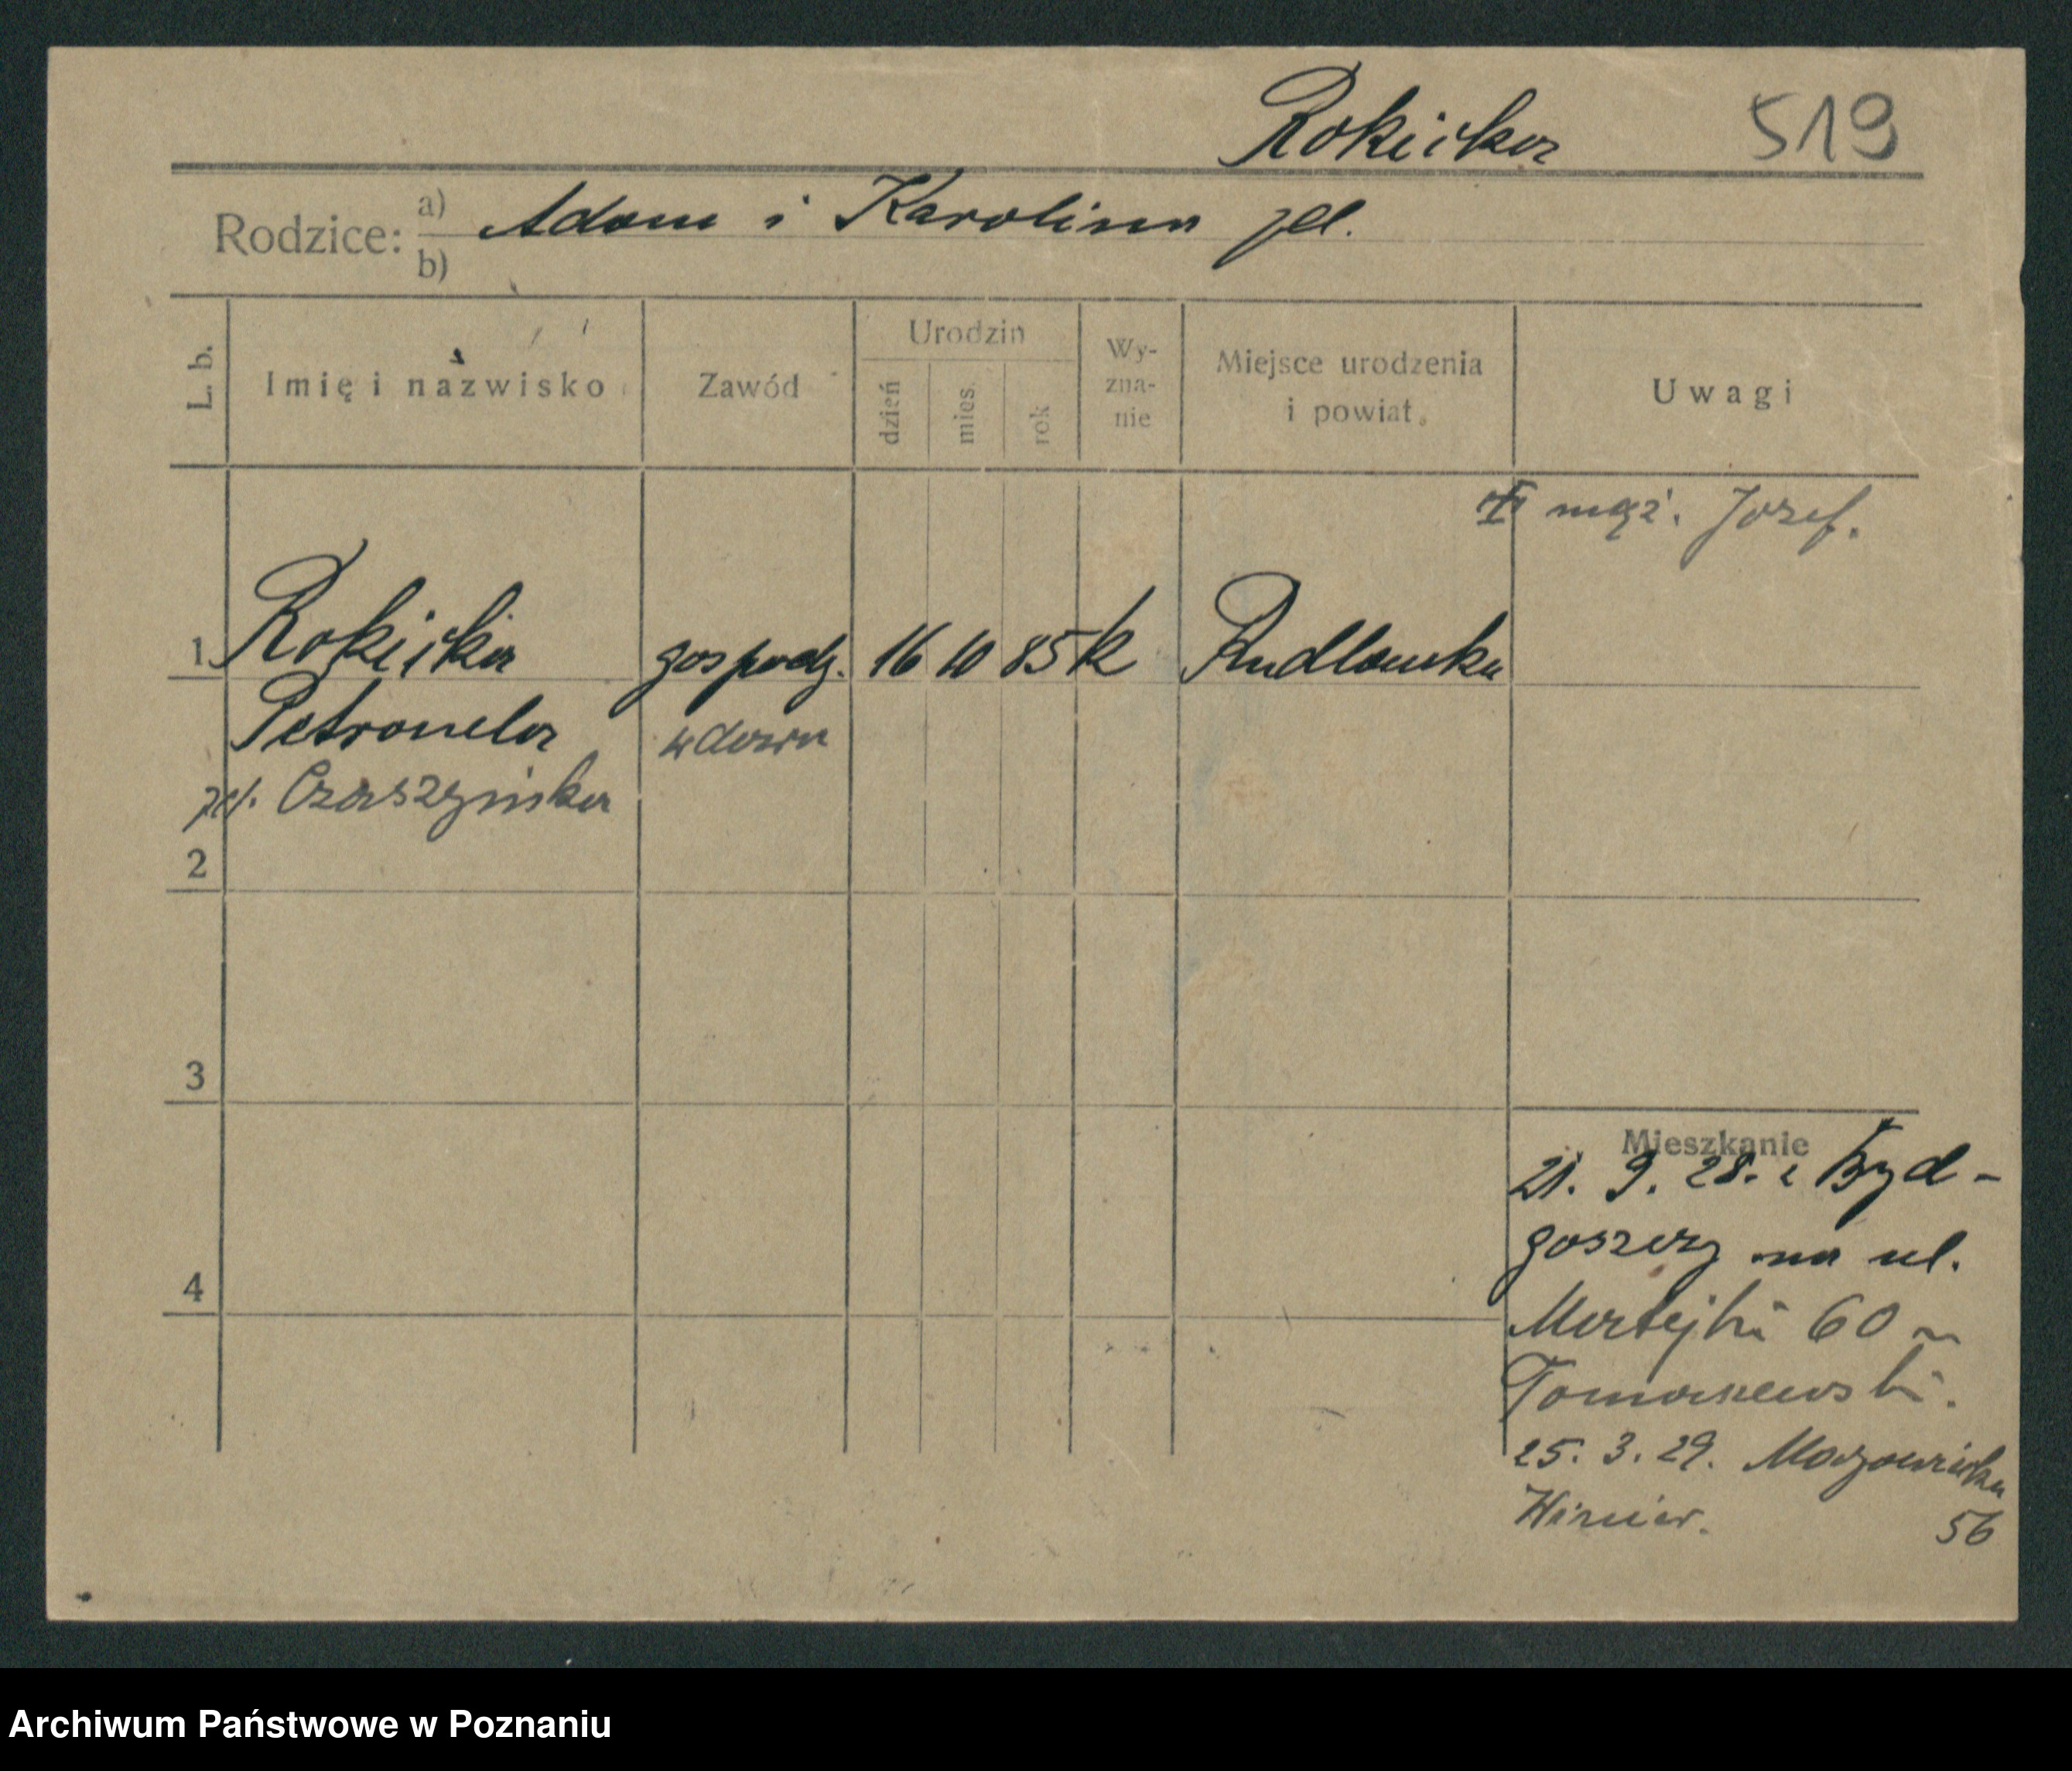 Rokicka 519
Rodzice: a) Adam i Karolina
b)
L. b. Imię i nazwisko Zawód Urodzin dzień mies. rok Wy-zna-nie Miejsce urodzenia i powiat. Uwagi
mąż. Józef.
1 Rokicka gospodz. 16 10 85 k
Petronela wdowa
2
3
4
Mieszkanie
21. 9. 28. z Byd-
goszczy na ul.
Matejki 60
Tomaszewski.
25. 3. 29. Mazowiecka
56
Archiwum Państwowe w Poznaniu